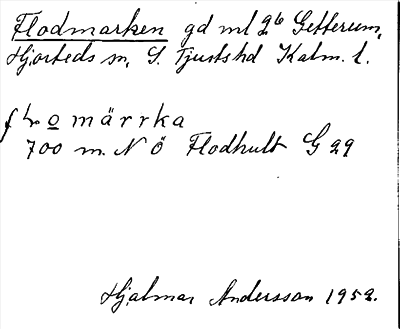 Flodmarken gd ml 2⁶ Getterum,
Hjorteds sn, S. Tjusts hd Kalm. l.
omärrka
700 m. N Ö Flodhult G 29
Hjalmar Andersson 1952.